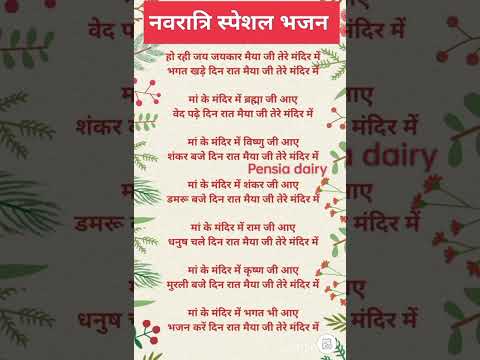 नवरात्रि स्पेशल भजन
हो रही जय जयकार मैया जी तेरे मंदिर में
भगत खड़े दिन रात मैया जी तेरे मंदिर में
मां के मंदिर में ब्रह्मा जी आए
वेद पढ़े दिन रात मैया जी तेरे मंदिर में
मां के मंदिर में विष्णु जी आए
शंकर बजे दिन रात मैया जी तेरे मंदिर में
Pensia dairy
मां के मंदिर में शंकर जी आए
डमरू बजे दिन रात मैया जी तेरे मंदिर में
मां के मंदिर में राम जी आए
धनुष चले दिन रात मैया जी तेरे मंदिर में
मां के मंदिर में कृष्ण जी आए
मुरली बजे दिन रात मैया जी तेरे मंदिर में
मां के मंदिर में भगत भी आए
भजन करें दिन रात मैया जी तेरे मंदिर में